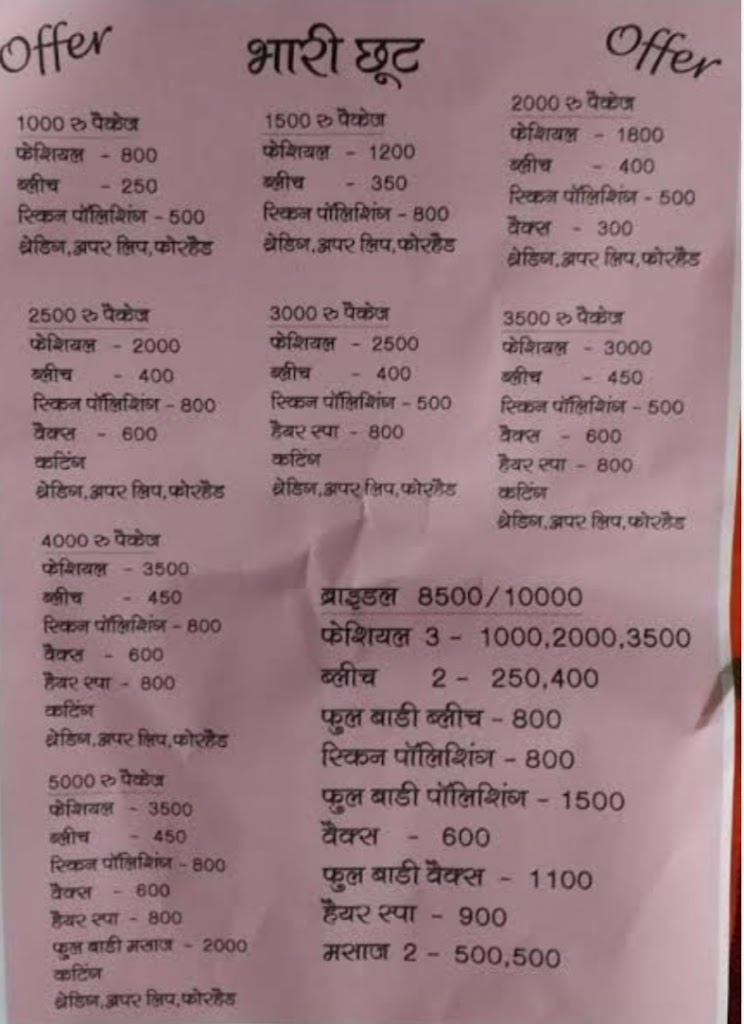 Offer भारी छूट Offer
1000 रु पैकेज
फेशियल - 800
ब्लीच - 250
स्किन पॉलिशिंग - 500
थ्रेडिंग,अपर लिप,फोरहैड
1500 रु पैकेज
फेशियल - 1200
ब्लीच - 350
स्किन पॉलिशिंग - 800
थ्रेडिंग,अपर लिप,फोरहैड
2000 रु पैकेज
फेशियल - 1800
ब्लीच - 400
स्किन पॉलिशिंग - 500
वैक्स - 300
थ्रेडिंग,अपर लिप,फोरहैड
2500 रु पैकेज
फेशियल - 2000
ब्लीच - 400
स्किन पॉलिशिंग - 800
वैक्स - 600
कटिंग
थ्रेडिंग,अपर लिप,फोरहैड
3000 रु पैकेज
फेशियल - 2500
ब्लीच - 400
स्किन पॉलिशिंग - 500
हैयर स्पा - 800
कटिंग
थ्रेडिंग,अपर लिप,फोरहैड
3500 रु पैकेज
फेशियल - 3000
ब्लीच - 450
स्किन पॉलिशिंग - 500
वैक्स - 600
हैयर स्पा - 800
कटिंग
थ्रेडिंग,अपर लिप,फोरहैड
4000 रु पैकेज
फेशियल - 3500
ब्लीच - 450
स्किन पॉलिशिंग - 800
वैक्स - 600
हैयर स्पा - 800
कटिंग
थ्रेडिंग,अपर लिप,फोरहैड
5000 रु पैकेज
फेशियल - 3500
ब्लीच - 450
स्किन पॉलिशिंग - 800
वैक्स - 600
हैयर स्पा - 800
फुल बाडी मसाज - 2000
कटिंग
थ्रेडिंग,अपर लिप,फोरहैड
ब्राइडल 8500/10000
फेशियल 3 - 1000,2000,3500
ब्लीच 2 - 250,400
फुल बाडी ब्लीच - 800
स्किन पॉलिशिंग - 800
फुल बाडी पॉलिशिंग - 1500
वैक्स - 600
फुल बाडी वैक्स - 1100
हैयर स्पा - 900
मसाज 2 - 500,500